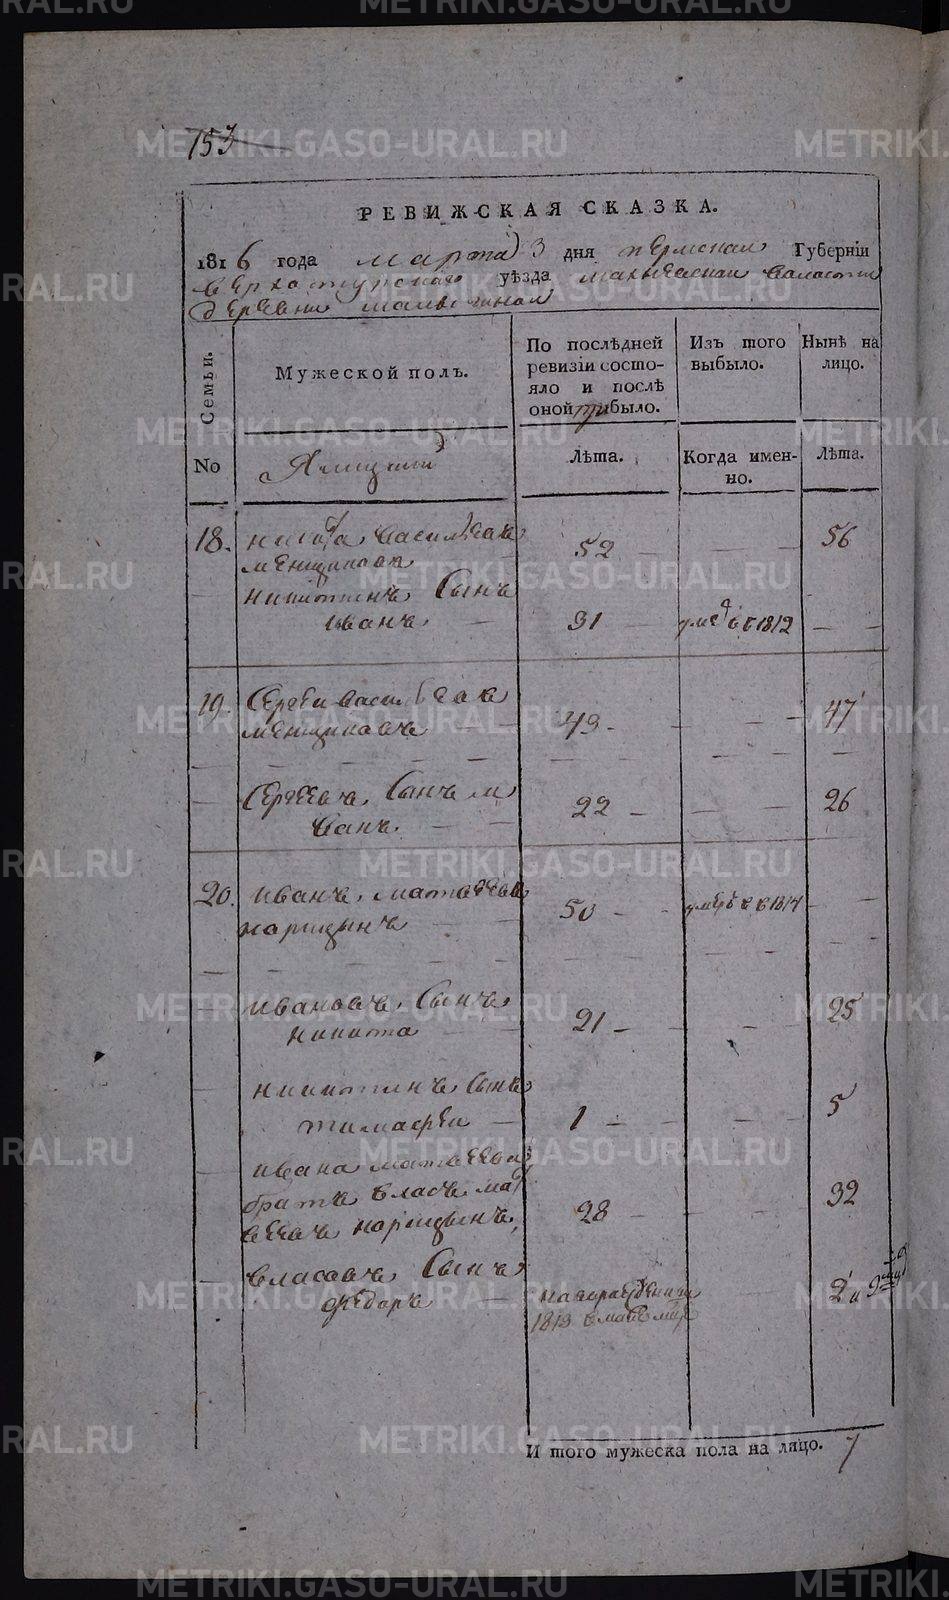 153
РЕВИЖСКАЯ СКАЗКА.
1816 года марта 3 дня пермскай Губерніи
верхотурскаго уѣзда махневскай валости
деревни малыгинай
Семьи. Мужеской полъ. По послѣдней ревизіи состояло и послѣ оной прибыло. Изъ того выбыло. Нынѣ на лицо.
No Ямщики Лѣта. Когда именно. Лѣта.
18. никита васильевъ 52 56
менщиковъ
никитинъ Сынъ
иванъ 31 1812
19. Сергеи васильевъ
менщиковъ 43 47
Сергеевъ Сынъ и
ванъ 22 26
20. иванъ матвеевъ 50 1814
паршинъ
ивановъ Сынъ
никита 21 25
никитинъ Сынъ
тимафеи 1 5
ивана матвеева
братъ власъ мат
веевъ 28 32
власавъ Сынъ
федаръ 2 и 9
1813
И того мужеска пола на лицо. 7
METRIKI.GASO-URAL.RU